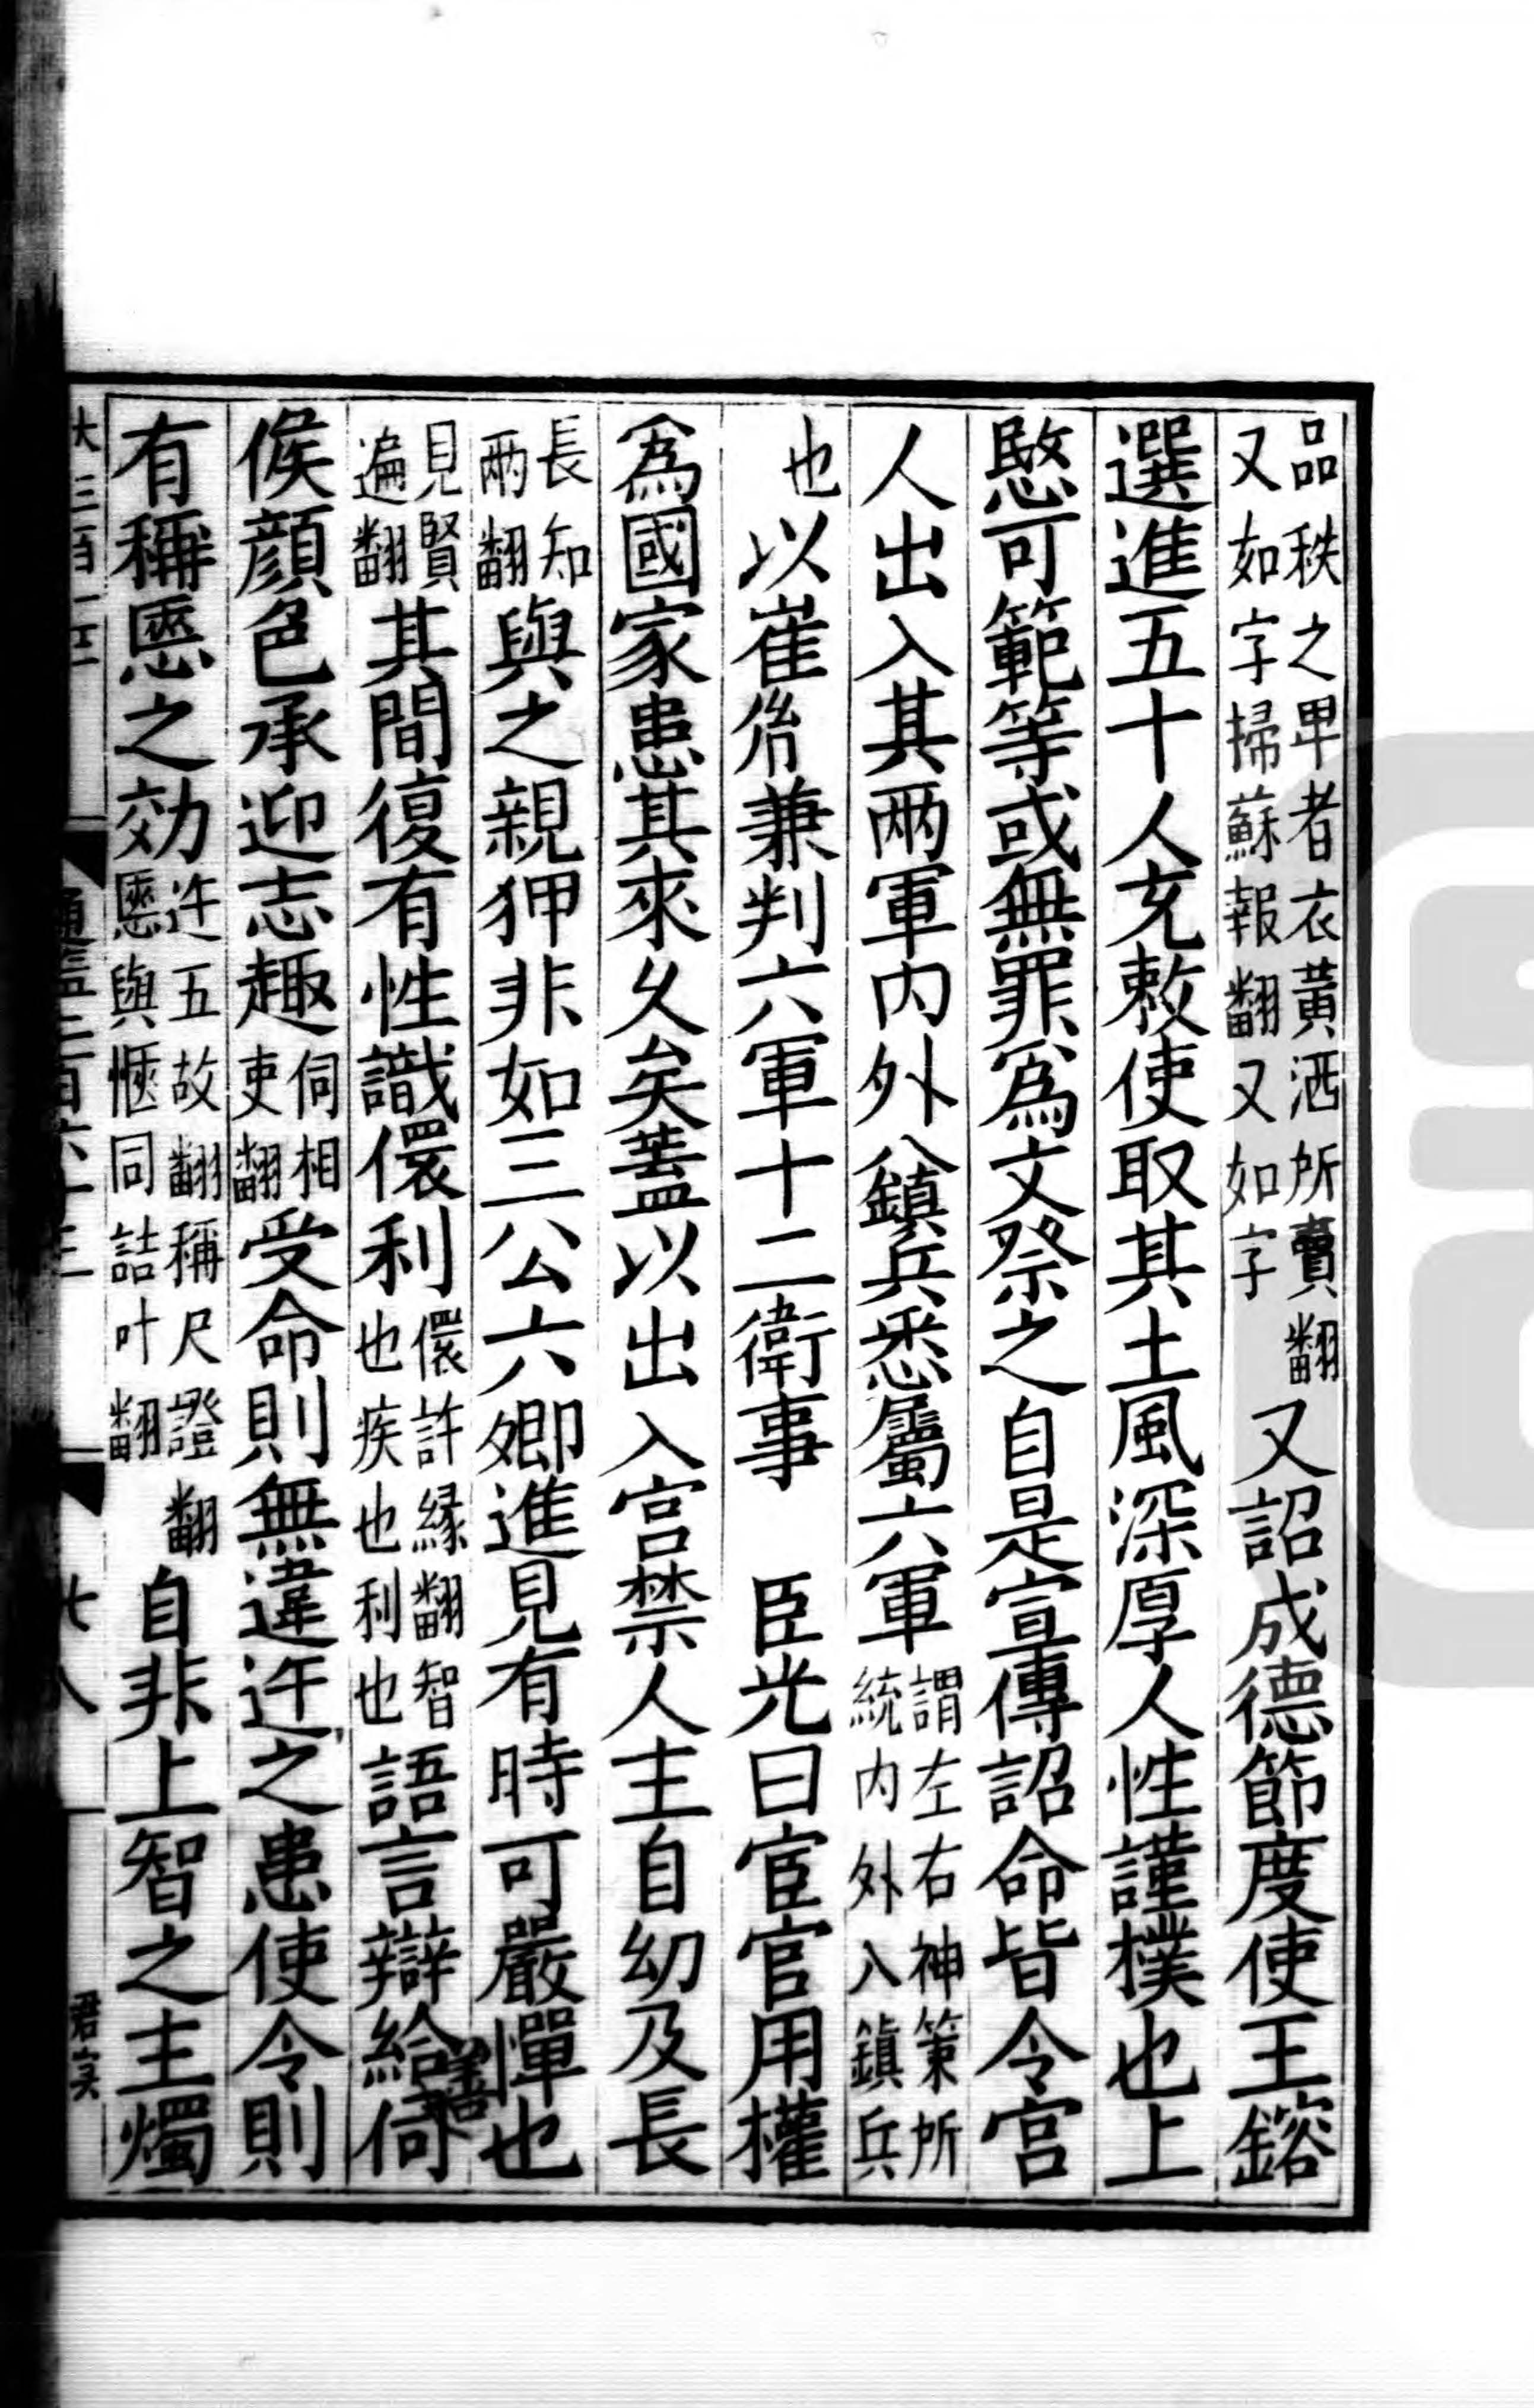 品秩之卑者衣黃洒所賣翻又如字掃蘇報翻又如字又詔成德節度使王鎔
選進五十人充敕使取其土風深厚人性謹樸也上
愍可範等或無罪爲文祭之自是宣傳詔命皆令宮
人出入其兩軍內外八鎮兵悉屬六軍謂左右神策所統內外八鎮兵
也以崔胤兼判六軍十二衛事　臣光曰宦官用權
爲國家患其來久矣蓋以出入宮禁人主自幼及長
長知兩翻與之親狎非如三公六卿進見有時可嚴憚也
見賢遍翻其間復有性識儇利儇許緣翻智也疾也利也語言辯給善伺
候顏色承迎志趣伺相吏翻受命則無違迕之患使令則
有稱愜之効迕五故翻稱尺證翻愜與㥦同詰叶翻自非上智之主燭
大三百一十
通鑑二百六十三
七八
君實